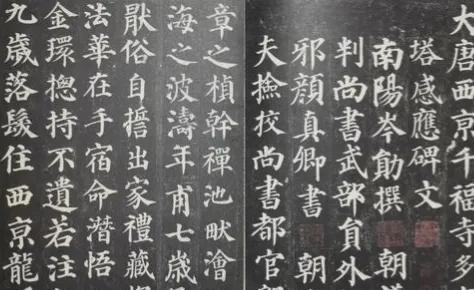 大唐西京千福寺多
塔感應碑文
南陽岑勛撰 朝
判尚書武部員外
邪顏真卿書 朝
夫撿挍尚書都官
章之楨幹禪池畎澮
海之波濤年甫七歲
猒俗自誓出家禮藏
法華在手宿命潛悟
金環捴持不遺若注
九歲落髮住西京龍